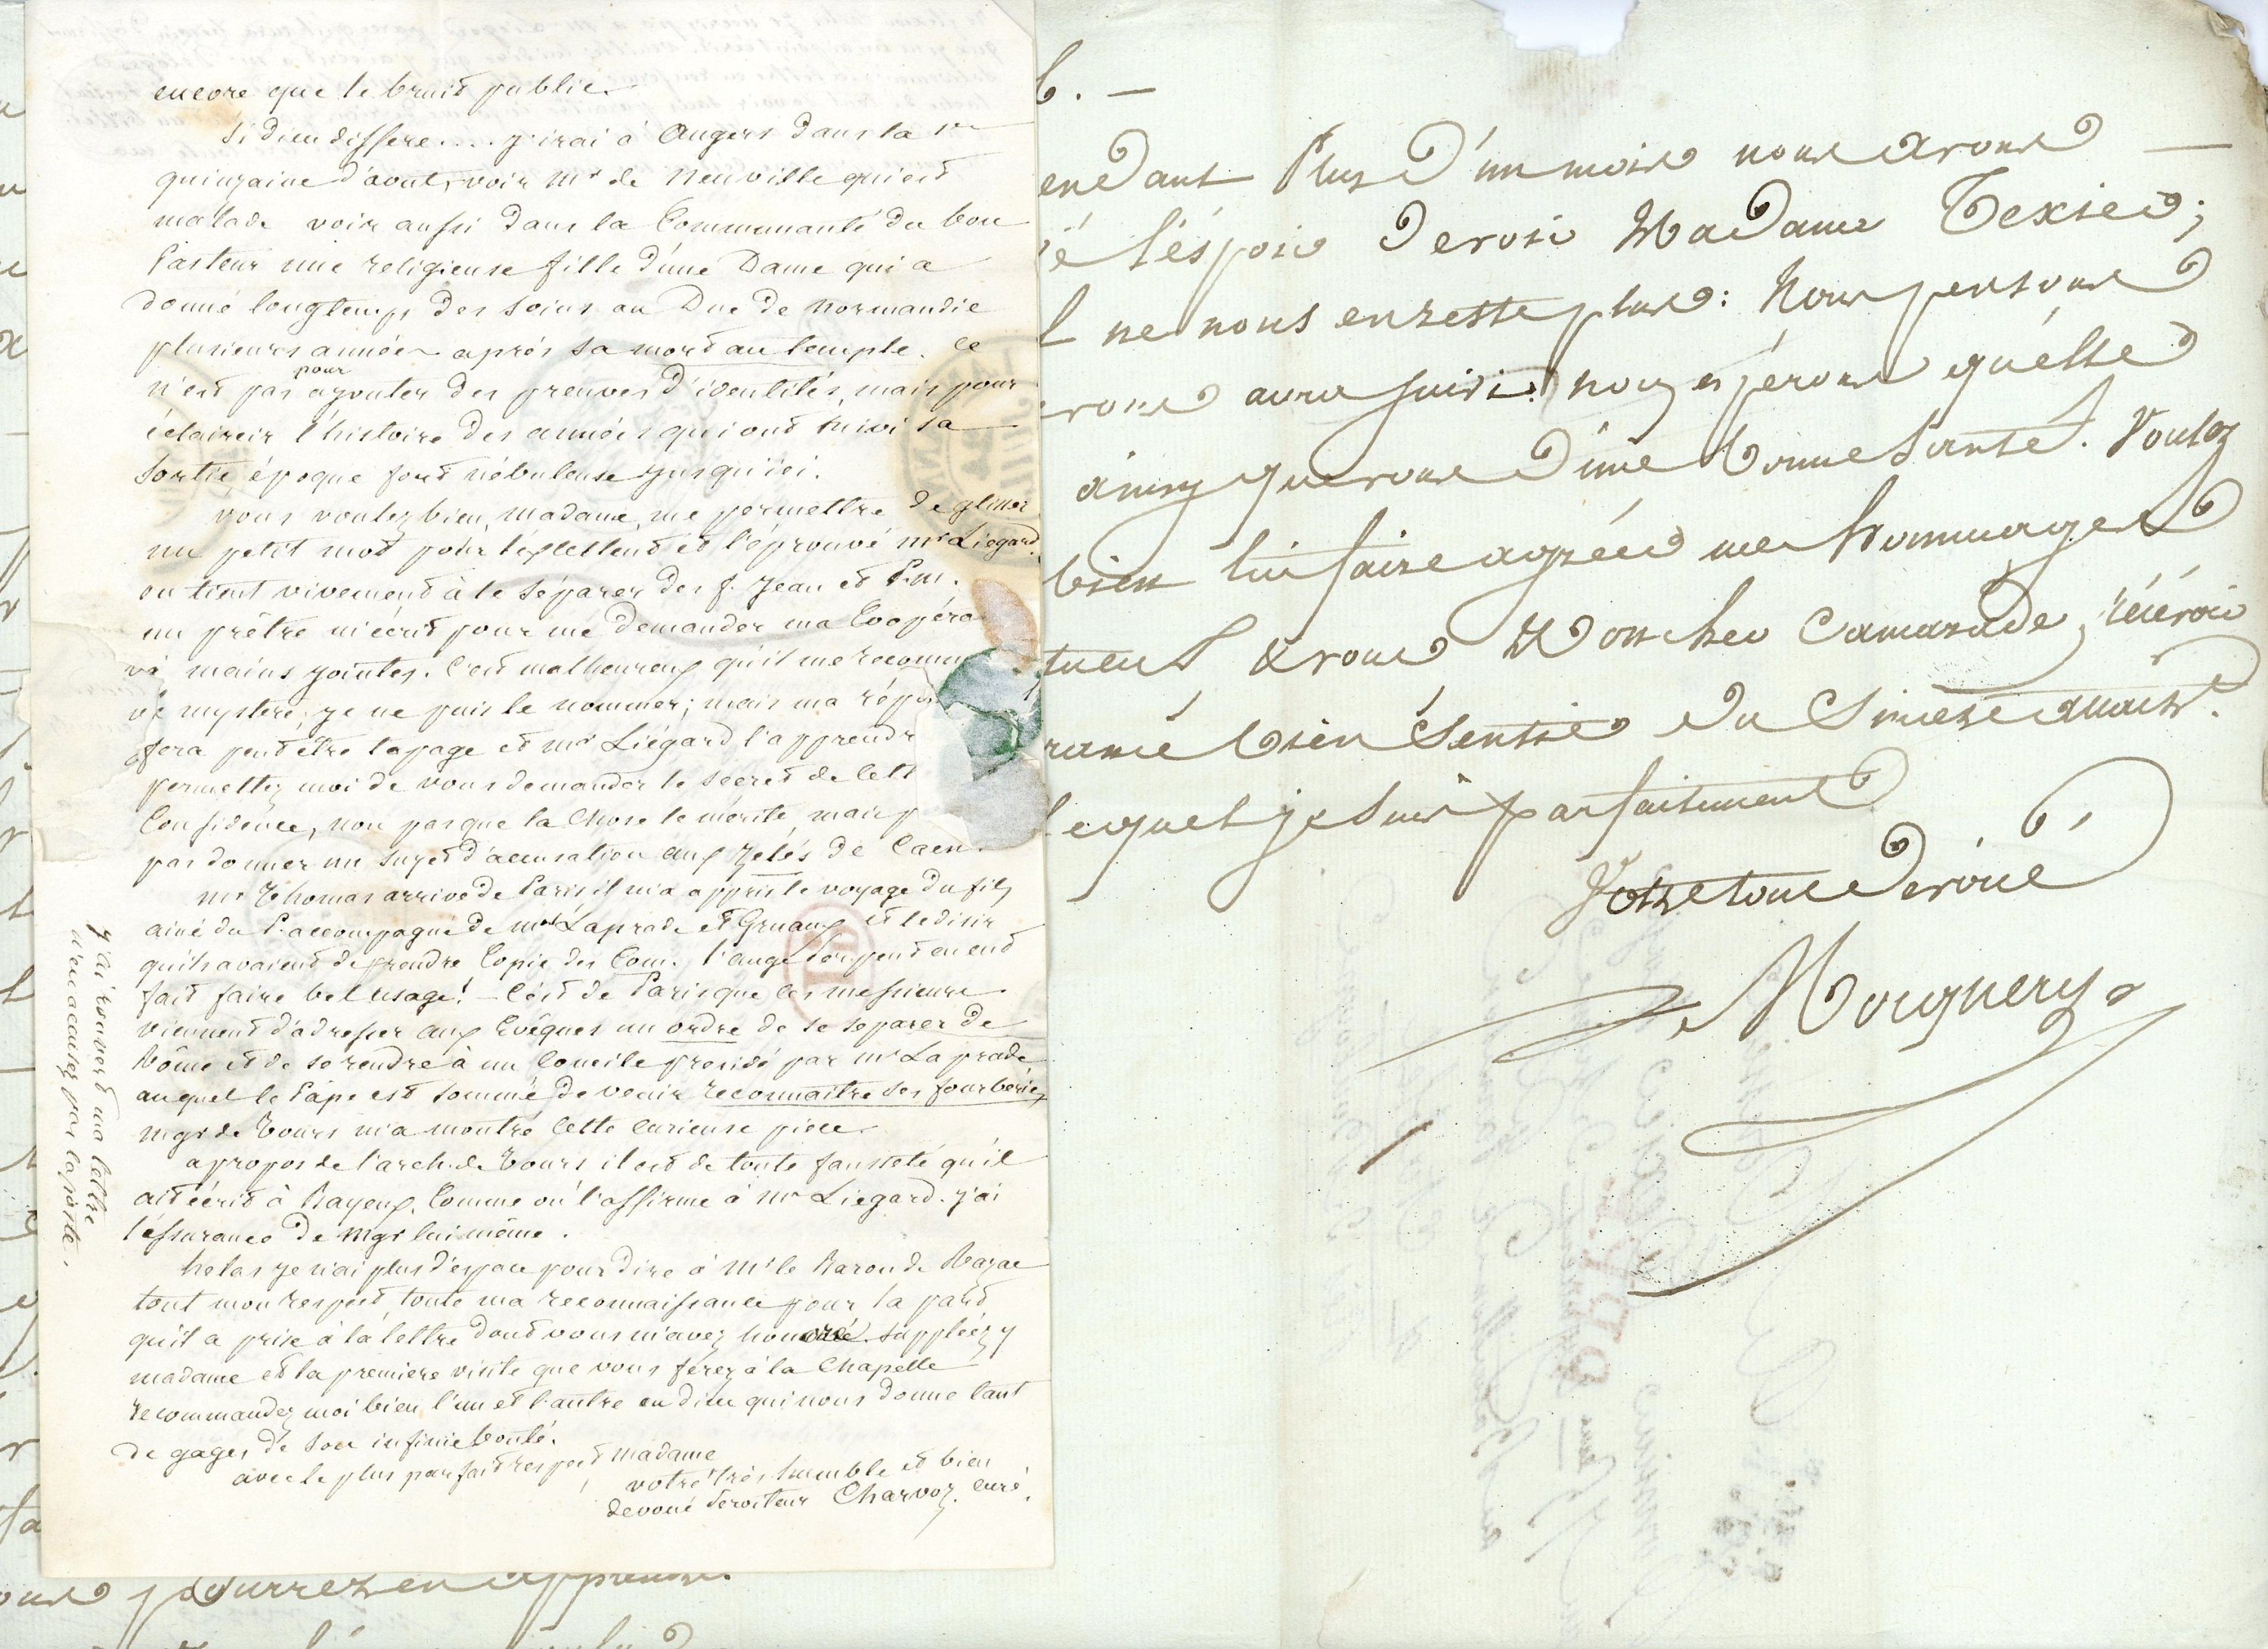 encore que le bruit public.
Si dieu differe.... j'irai à Angers dans la 1re
quinzaine d'aout, voir Mr de Neuville qui est
malade voir aussi dans la Communauté du bon
Pasteur une religieuse fille d'une Dame qui a
donné longtemps des soins au Duc de Normandie
plusieurs années après sa mort au temple. Ce
n'est pas pour ajouter des preuves d'identités, mais pour
éclaircir l'histoire des années qui ont suivi sa
sortie, époque fort nébuleuse jusqu'ici.
vous voulez bien, madame, me permettre de glisser
un petit mot pour l'excellent et l'éprouvé mr Liegard
on tient vivement à le séparer des f. Jean et P.m.
un prêtre m'écrit pour me demander ma Coopéra
à mains jointes. C'est malheureux qu'il me recomm
mystere; je ne puis le nommer; mais ma répo
fera peut être tapage et mr Liégard l'apprendr
permettez moi de vous demander le secret de cett
Confidence, non pas que la Chose le mérite, mais p
pas donner un sujet d'accusation aux zelés de Caen.
mr Thomas arrive de Paris il m'a appris le voyage du fils
ainé du P. accompagné de mrs Laprade et Gruau et le désir
qu'ils avaient de prendre Copie des Com. l'ange serpent en eut
fait faire bel usage! — C'est de Paris que ces messieurs
viennent d'adresser aux Evêques un ordre de se separer de
Rôme et de se rendre à un Concile presidé par mr Laprade
auquel le Pape est sommé de venir reconnaitre ses fourberies
mgr de Tours m'a montré cette curieuse piece.
apropos de l'arch. de Tours il est de toute fausseté qu'il
ait écrit à Bayeux, Comme on l'affirme à mr Liegard. j'ai
l'assurance de Mgr lui même.
helas je n'ai plus d'espace pour dire à Mr le Baron de Razac
tout mon respect, toute ma reconnaissance pour la part
qu'il a prise à la lettre dont vous m'avez honoré. suppléez y
madame et la premiere visite que vous ferez à la Chapelle
recommandez moi bien l'un et l'autre au dieu qui nous donne tant
de gages de son infinie bonté.
avec le plus parfait respect madame
votre très humble et bien
devoué serviteur Charvoz. curé.
j'ai rouvert ma lettre
n'en accusez pas la poste.
6. —
endant Plus D'un mois nous avons —
é l'éspoir De voir Madame Texier;
l ne nous en reste plus: Nous pensons
vous aura suivi. nous espérons qu'elle
ainsy que vous D'une bonne Santé. Voulez
bien lui faire agréer mes hommages
tueux & vous Mon cher Camarade, récévoir
rance bien Sentie du Sincere attach.
lequel je Suis parfaitement
Votre tout Dévoué
Mougnery
pourrez en apprendre.